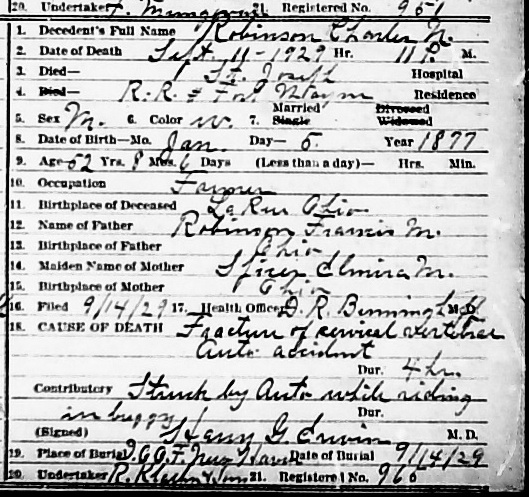 20. Undertaker F. 21. Registered No. 951
1. Decedent's Full Name Robinson Charles N.
2. Date of Death Sept. 11 - 1929 Hr. 11 P. M.
3. Died— St. Joseph Hospital
4. Died— R.R. # Fort Wayne Residence
Married Divorced
5. Sex M. 6. Color W. 7. Single Widowed
8. Date of Birth—Mo. Jan. Day— 5. Year 1877
9. Age 52 Yrs. 8 Mos. 6 Days (Less than a day)— Hrs. Min.
10. Occupation Farmer
11. Birthplace of Deceased LaRue Ohio
12. Name of Father Robinson Francis M.
13. Birthplace of Father Ohio
14. Maiden Name of Mother Spicer Elmira M.
15. Birthplace of Mother Ohio
16. Filed 9/14/29 17. Health Officer D. R. Benninghoff M. D.
18. CAUSE OF DEATH Fracture of cervical vertebrae
Auto accident
Dur. 4 hr.
Contributory Struck by Auto while riding
in buggy Dur.
(Signed) Harry G. Erwin M. D.
19. Place of Burial I.O.O.F. New Haven Date of Burial 9/14/29
20. Undertaker R. & Son 21. Registered No. 960